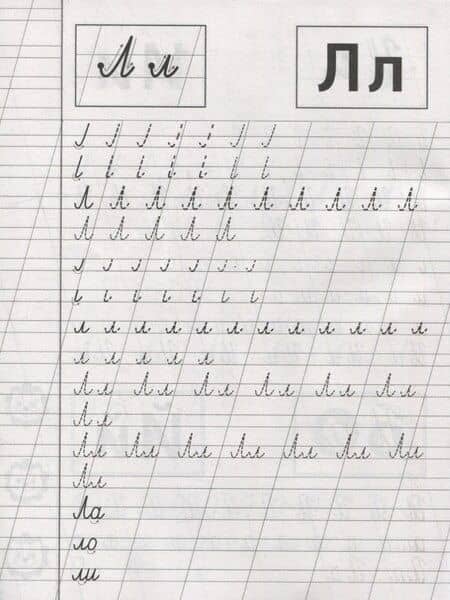 Л л Лл
Л Л Л Л Л Л Л Л Л Л
Л Л Л Л Л
л л л л л л л л л л л л
л л л л л
Лл Лл Лл Лл Лл Лл
Лл
Лл Лл Лл Лл Лл Лл Лл
Лл
Ла
ло
ли